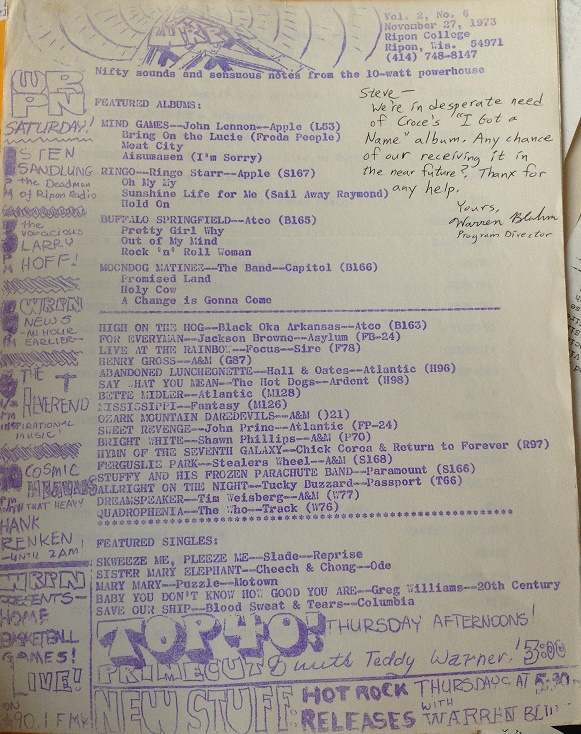 Vol. 2, No. 6
November 27, 1973
Ripon College
Ripon, Wis. 54971
(414) 748-8147
Nifty sounds and sensuous notes from the 10-watt powerhouse
Steve—
We're in desperate need
of Croce's "I Got a
Name" album. Any chance
of our receiving it in
the near future? Thanx for
any help.
Yours,
Warren Bluhm
Program Director
FEATURED ALBUMS:
MIND GAMES--John Lennon--Apple (L53)
Bring On the Lucie (Freda People)
Meat City
Aisumasen (I'm Sorry)
RINGO--Ringo Starr--Apple (S167)
Oh My My
Sunshine Life for Me (Sail Away Raymond)
Hold On
BUFFALO SPRINGFIELD--Atco (B165)
Pretty Girl Why
Out of My Mind
Rock 'n' Roll Woman
MOONDOG MATINEE--The Band--Capitol (B166)
Promised Land
Holy Cow
A Change is Gonna Come
HIGH ON THE HOG--Black Oka Arkansas--Atco (B163)
FOR EVERYMAN--Jackson Browne--Asylum (FB-24)
LIVE AT THE RAINBOW--Focus--Sire (F78)
HENRY GROSS--A&M (G87)
ABANDONED LUNCHEONETTE--Hall & Oates--Atlantic (H96)
SAY WHAT YOU MEAN--The Hot Dogs--Ardent (H98)
BETTE MIDLER--Atlantic (M128)
MISSISSIPPI--Fantasy (M126)
OZARK MOUNTAIN DAREDEVILS--A&M ()21)
SWEET REVENGE--John Prine--Atlantic (FP-24)
BRIGHT WHITE--Shawn Phillips--A&M (P70)
HYMN OF THE SEVENTH GALAXY--Chick Corea & Return to Forever (R97)
FERGUSLIE PARK--Stealers Wheel--A&M (S168)
STUFFY AND HIS FROZEN PARACHUTE BAND--Paramount (S166)
ALLRIGHT ON THE NIGHT--Tucky Buzzard--Passport (T66)
DREAMSPEAKER--Tim Weisberg--A&M (W77)
QUADROPHENIA--The Who--Track (W76)
FEATURED SINGLES:
SKWEEZE ME, PLEEZE ME--Slade--Reprise
SISTER MARY ELEPHANT--Cheech & Chong--Ode
MARY MARY--Puzzle--Motown
BABY YOU DON'T KNOW HOW GOOD YOU ARE--Greg Williams--20th Century
SAVE OUR SHIP--Blood Sweat & Tears--Columbia
WRPN
SATURDAY!
STEN
SANDLUNG
the Deadman
of Ripon Radio
the
voracious
LARRY
HOFF!
WRPN
NEWS
AN HOUR
EARLIER—
THE
REVEREND
MUSIC!
COSMIC
WITH THAT HEAVY
HANK
RENKEN
—UNTIL 2AM!
WRPN
PRESENTS—
HOME
BASKETBALL
GAMES!
LIVE!
ON
90.1 FM
TOP 40! THURSDAY AFTERNOONS!
PRIMECUT with Teddy Warner! 3:00
NEW STUFF: HOT ROCK THURSDAYS AT
RELEASES WITH WARREN